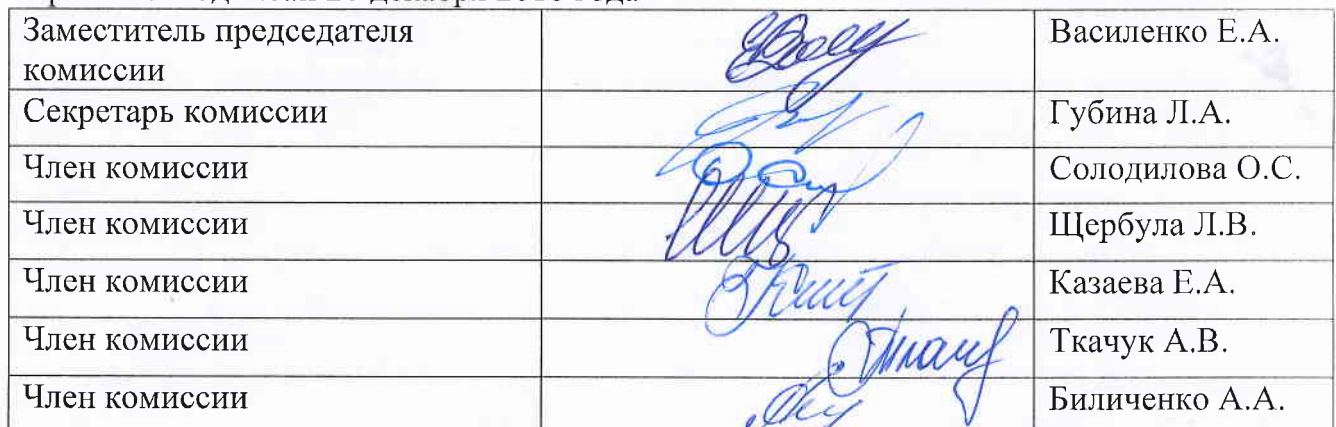 Заместитель председателя
комиссии
Василенко Е.А.
Секретарь комиссии
Губина Л.А.
Член комиссии
Солодилова О.С.
Член комиссии
Щербула Л.В.
Член комиссии
Казаева Е.А.
Член комиссии
Ткачук А.В.
Член комиссии
Биличенко А.А.